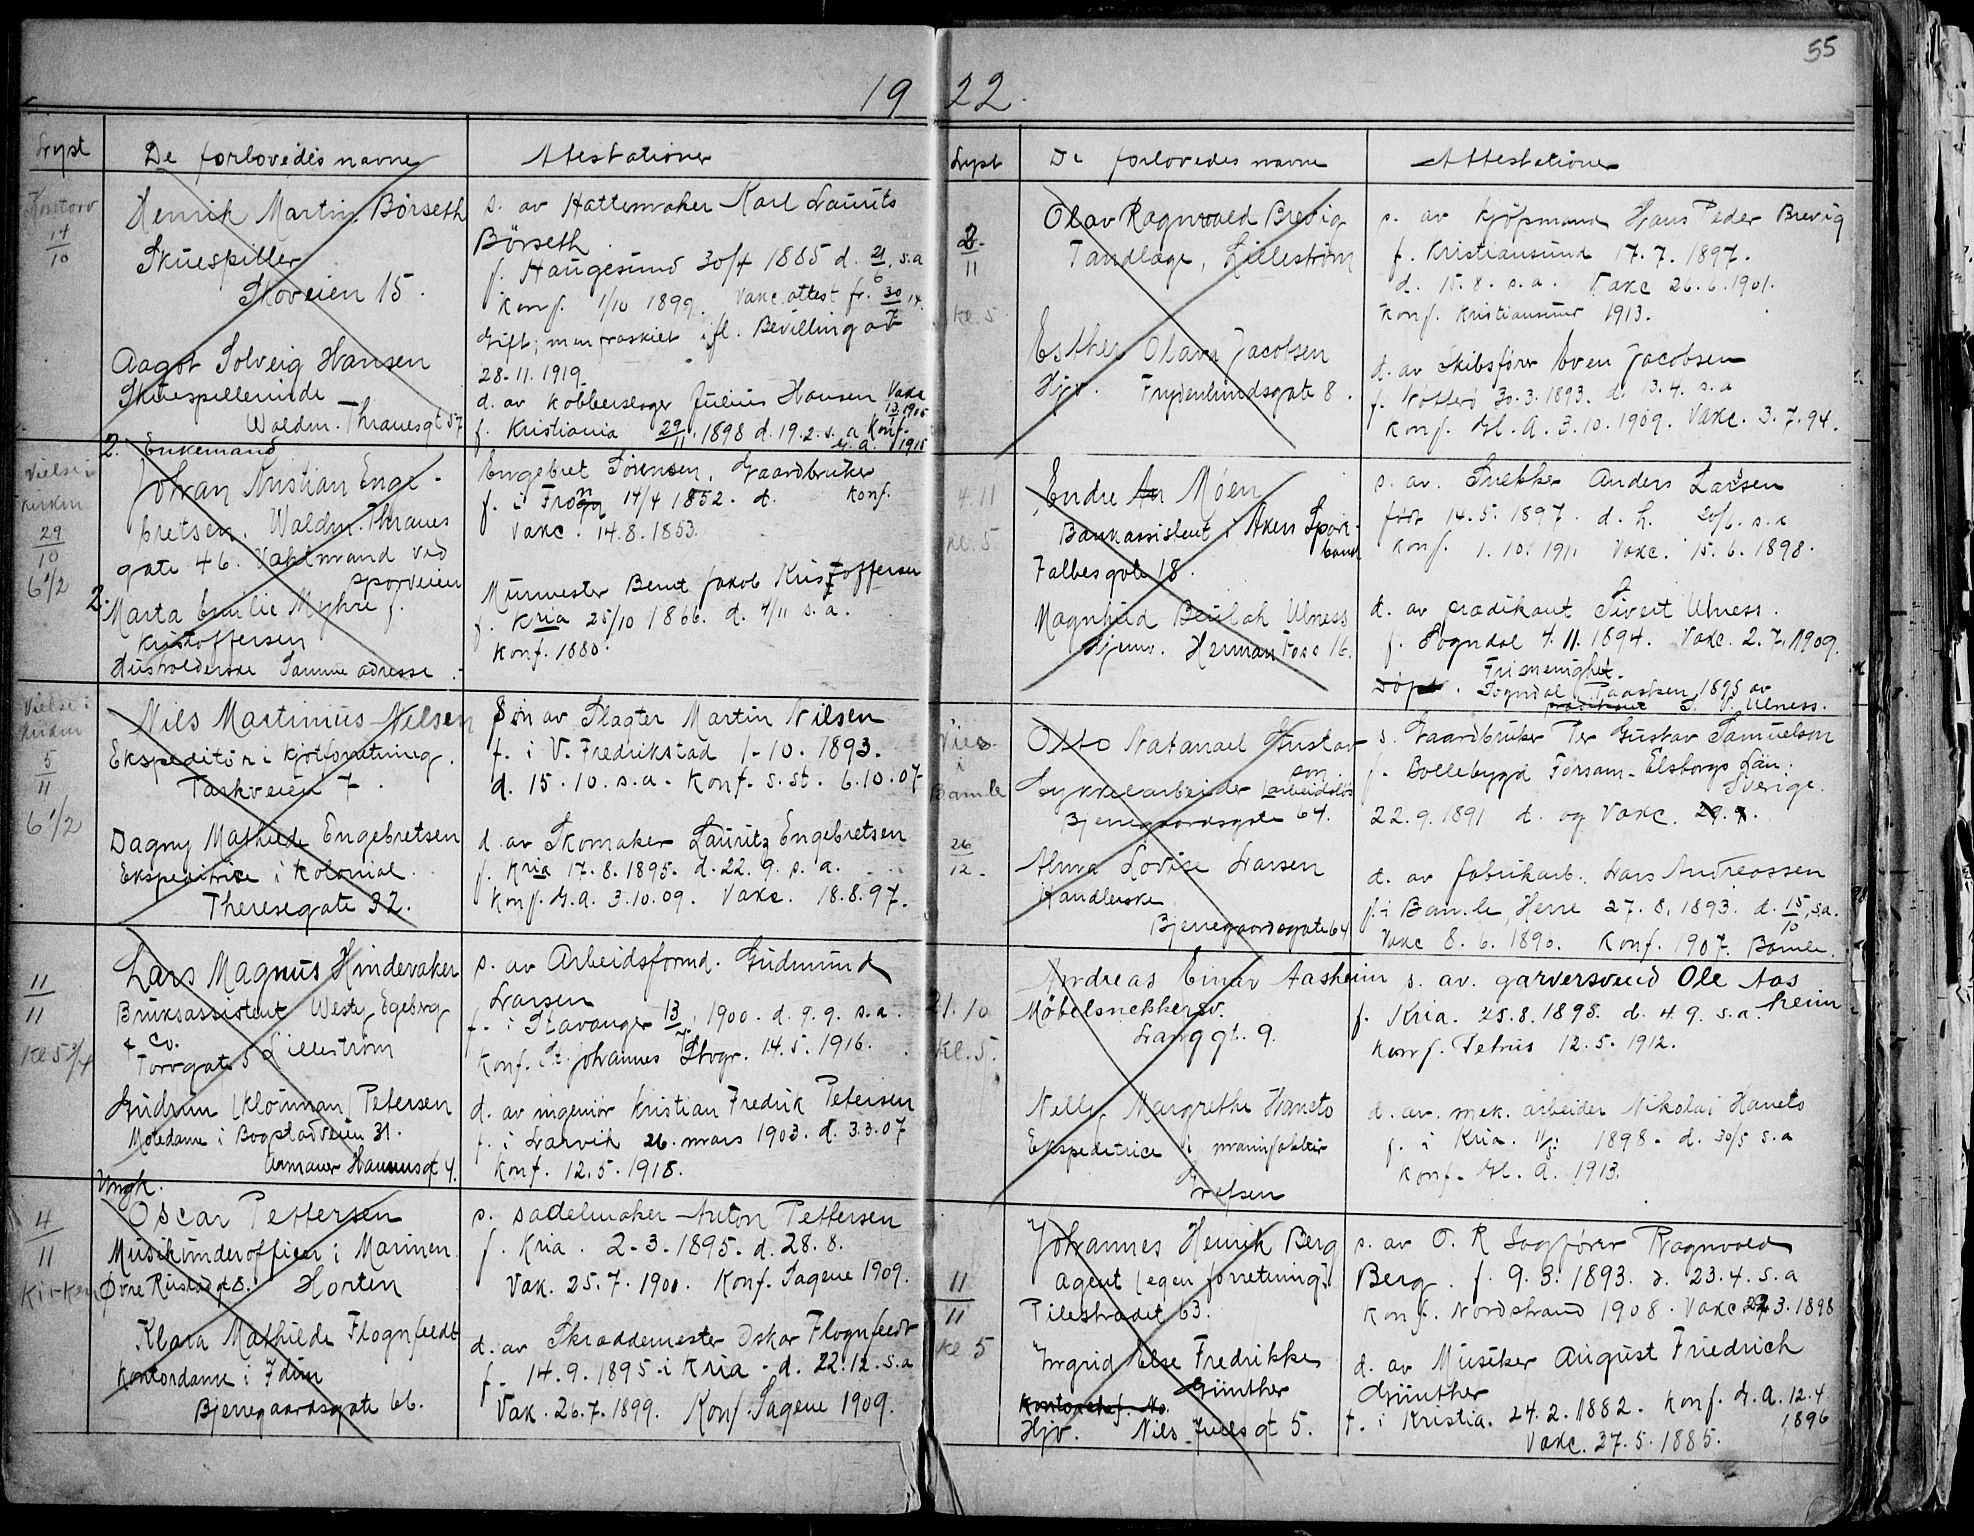 55
19 22.
Lyst De forlovedes navne Attestationer
Kontoret
14/10
Henrik Martin Börseth
Skuespiller
Skoveien 15.
Aagot Solveig Hansen
Skuespillerinde
Waldm. Thranesgt 57
s. av Hattemaker Karl Laurits
Börseth.
f. Haugesund 30/4 1885 d. 21/6 s.a
Konf. 1/10 1899. Vakc. attest fr. 30/7 14.
Gift; men fraskilt ifl. Bevilling av
28-11.1919.
d. av Kobberslager Julius Hansen Vakc
f. Kristiania 29/11 1898 d. 19.2. s. a Konf.
G. a. 1915
Vielse i
kirken
29/10
6 1/2
2. Enkemand
Johan Kristian Enge-
bretsen. Waldm. Thranes
gate 46. Vahtmand ved
sporveien
2. Marta Emilie Myhre f.
Kristoffersen
Husholderske Samme adresse.
Engebret Sörensen, Gaardbruker
f. i Frogn 14/4 1852. d. Konf.
Vakc. 14.8.1853.
Murmester Bernt Jakob Kristoffersen
f. Kria 25/10 1866. d. 4/11 s.a.
Konf. 1880.
Vielse i
kirken
5/11
6 1/2
Nils Martinius Nilsen
Ekspeditör i kjötforretning.
Taskveien 7.
Dagny Mathilde Engebretsen
Ekspeditrice i Kolonial.
Theresegate 32.
Sön av Slagter Martin Nilsen
f. i V. Fredrikstad 1-10.1893.
d. 15.10. s.a. Konf. s. st. 6.10.07
d. av Skomaker Lauritz Engebretsen
f. Kria 17.8.1895. d. 22.9. s. a.
Konf. G.a. 3.10.09. Vakc. 18.8.97.
11/11
Kl 5 3/4
Lars Magnus Hindevaker
Bruksassistent Westy Egeberg
& Co.
Torvgate 5 Lilleström
Gudrun (Klouman) Petersen
Motedame i Bogstadveien 31.
Armauer Hansensgt 4.
s. av Arbeidsformd. Gudmund
Larsen
f. i Stavanger 13/7 1900. d. 9.9. s.a.
Konf. St. Johannes Stvgr. 14.5.1916.
d. av ingeniör Kristian Fredrik Petersen
f. i Larvik 26. mars 1903. d. 3.3.07
Konf. 12.5.1918.
4/11
Kirken
Ungk.
Oscar Pettersen
Musikunderofficer i Marinen
Øvre Ristad gt 8. Horten
Klara Mathilde Flognfeldt
Kontordame i Idun
Bjerregaardsgate 66.
s. sadelmaker Anton Pettersen
f. Kria. 2-3.1895. d. 28.8.
Vak. 25.7.1900. Konf. Sagene 1909.
d. av Skræddermester Oskar Flognfeldt
f. 14.9.1895 i Kria - d. 22.12. s.a
Vak. 26.7.1899. Konf Sagene 1909.
Lyst De forlovedes navne Attestationer
2/11
Kl. 5
Olav Ragnvald Brevig
Tandlæge, Lilleström
Esther Olava Jacobsen
Hjv. Frydenlundsgate 8.
s. av Kjöpmand Hans Peder Brevig
f. Kristiansund 17.7.1897.
d. 15.8. s.a. Vakc 26.6.1901.
Konf. Kristiansund 1913.
d. av Skibsförer Even Jacobsen
f. Nötterö 30.3.1893. d. 13.4. s. a
Konf. Gl. A. 3.10.1909. Vakc. 3.7.94.
4.11
Kl. 5
Endre An Möen
Bankassistent i Akers Spare-
bank
Falbesgate 18.
Magnhild Beulah Ulness
Hjemv. Herman Foss 16.
s. av. Snekker Anders Larsen
född 14.5.1897. d. h. 20/6. s.a
Konf. 1.10.1911 Vakc. 15.6.1898.
d. av prædikant Sivert Ulness.
f. Sogndal 4.11.1894. Vakc. 2.7.1909.
Frimenighet.
Döpt. Sogndal 1895 av
prædikant S. V. Ulness.
Vies
i
Bamle
26/12
Otto Natanael Gustav
son
Sykkelarbeider (arbeidslös
Bjerregaardsgate 64.
Alma Lovise Larsen
Handlerske
Bjerregaardsgate 64
s. Gaardbruker Per Gustav Samuelson
f. Bollebygd Försam. Elsborgs Län.
Sverige.
22.9.1891 d. og Vakc. 29.9.
d. av fabrikarb. Lars Andreassen
f. i Bamle, Herre 27.8.1893. d. 15/10 s.a.
Vakc 8.6.1896. Konf. 1907. Bamle.
21.10
Kl. 5.
Andreas Einar Aasheim
Möbelsnekkersv.
Langgt. 9.
Nelly Margrethe Haneto
Ekspeditrice i manufaktur
Grefsen
s. av. garversvend Ole Aas
heim
f. Kria. 25.8.1895. d. 4.9. s.a.
Konf. Petrus 12.5.1912.
d. av. mek. arbeider Nikolai Haneto
f. i Kria. 11/3 1898. d. 30/5 s.a
Konf. Gl. A. 1913.
11/11
Kl 5
Johannes Henrik Berg
Agent (egen forretning).
Pilestrædet 63.
Ingrid Else Fredrikke
Günther
Hjv. Nils Juels gt 5.
s. av O. R Sagförer Ragnvald
Berg. f. 9.3.1893. d. 23.4. s.a
Konf. Nordstrand 1908. Vakc 22.3.1898
d. av Musiker August Friedrich
Günther
f. i Kristia. 24.2.1882. Konf. G.A. 12.4
1896
Vakc. 27.5.1885.